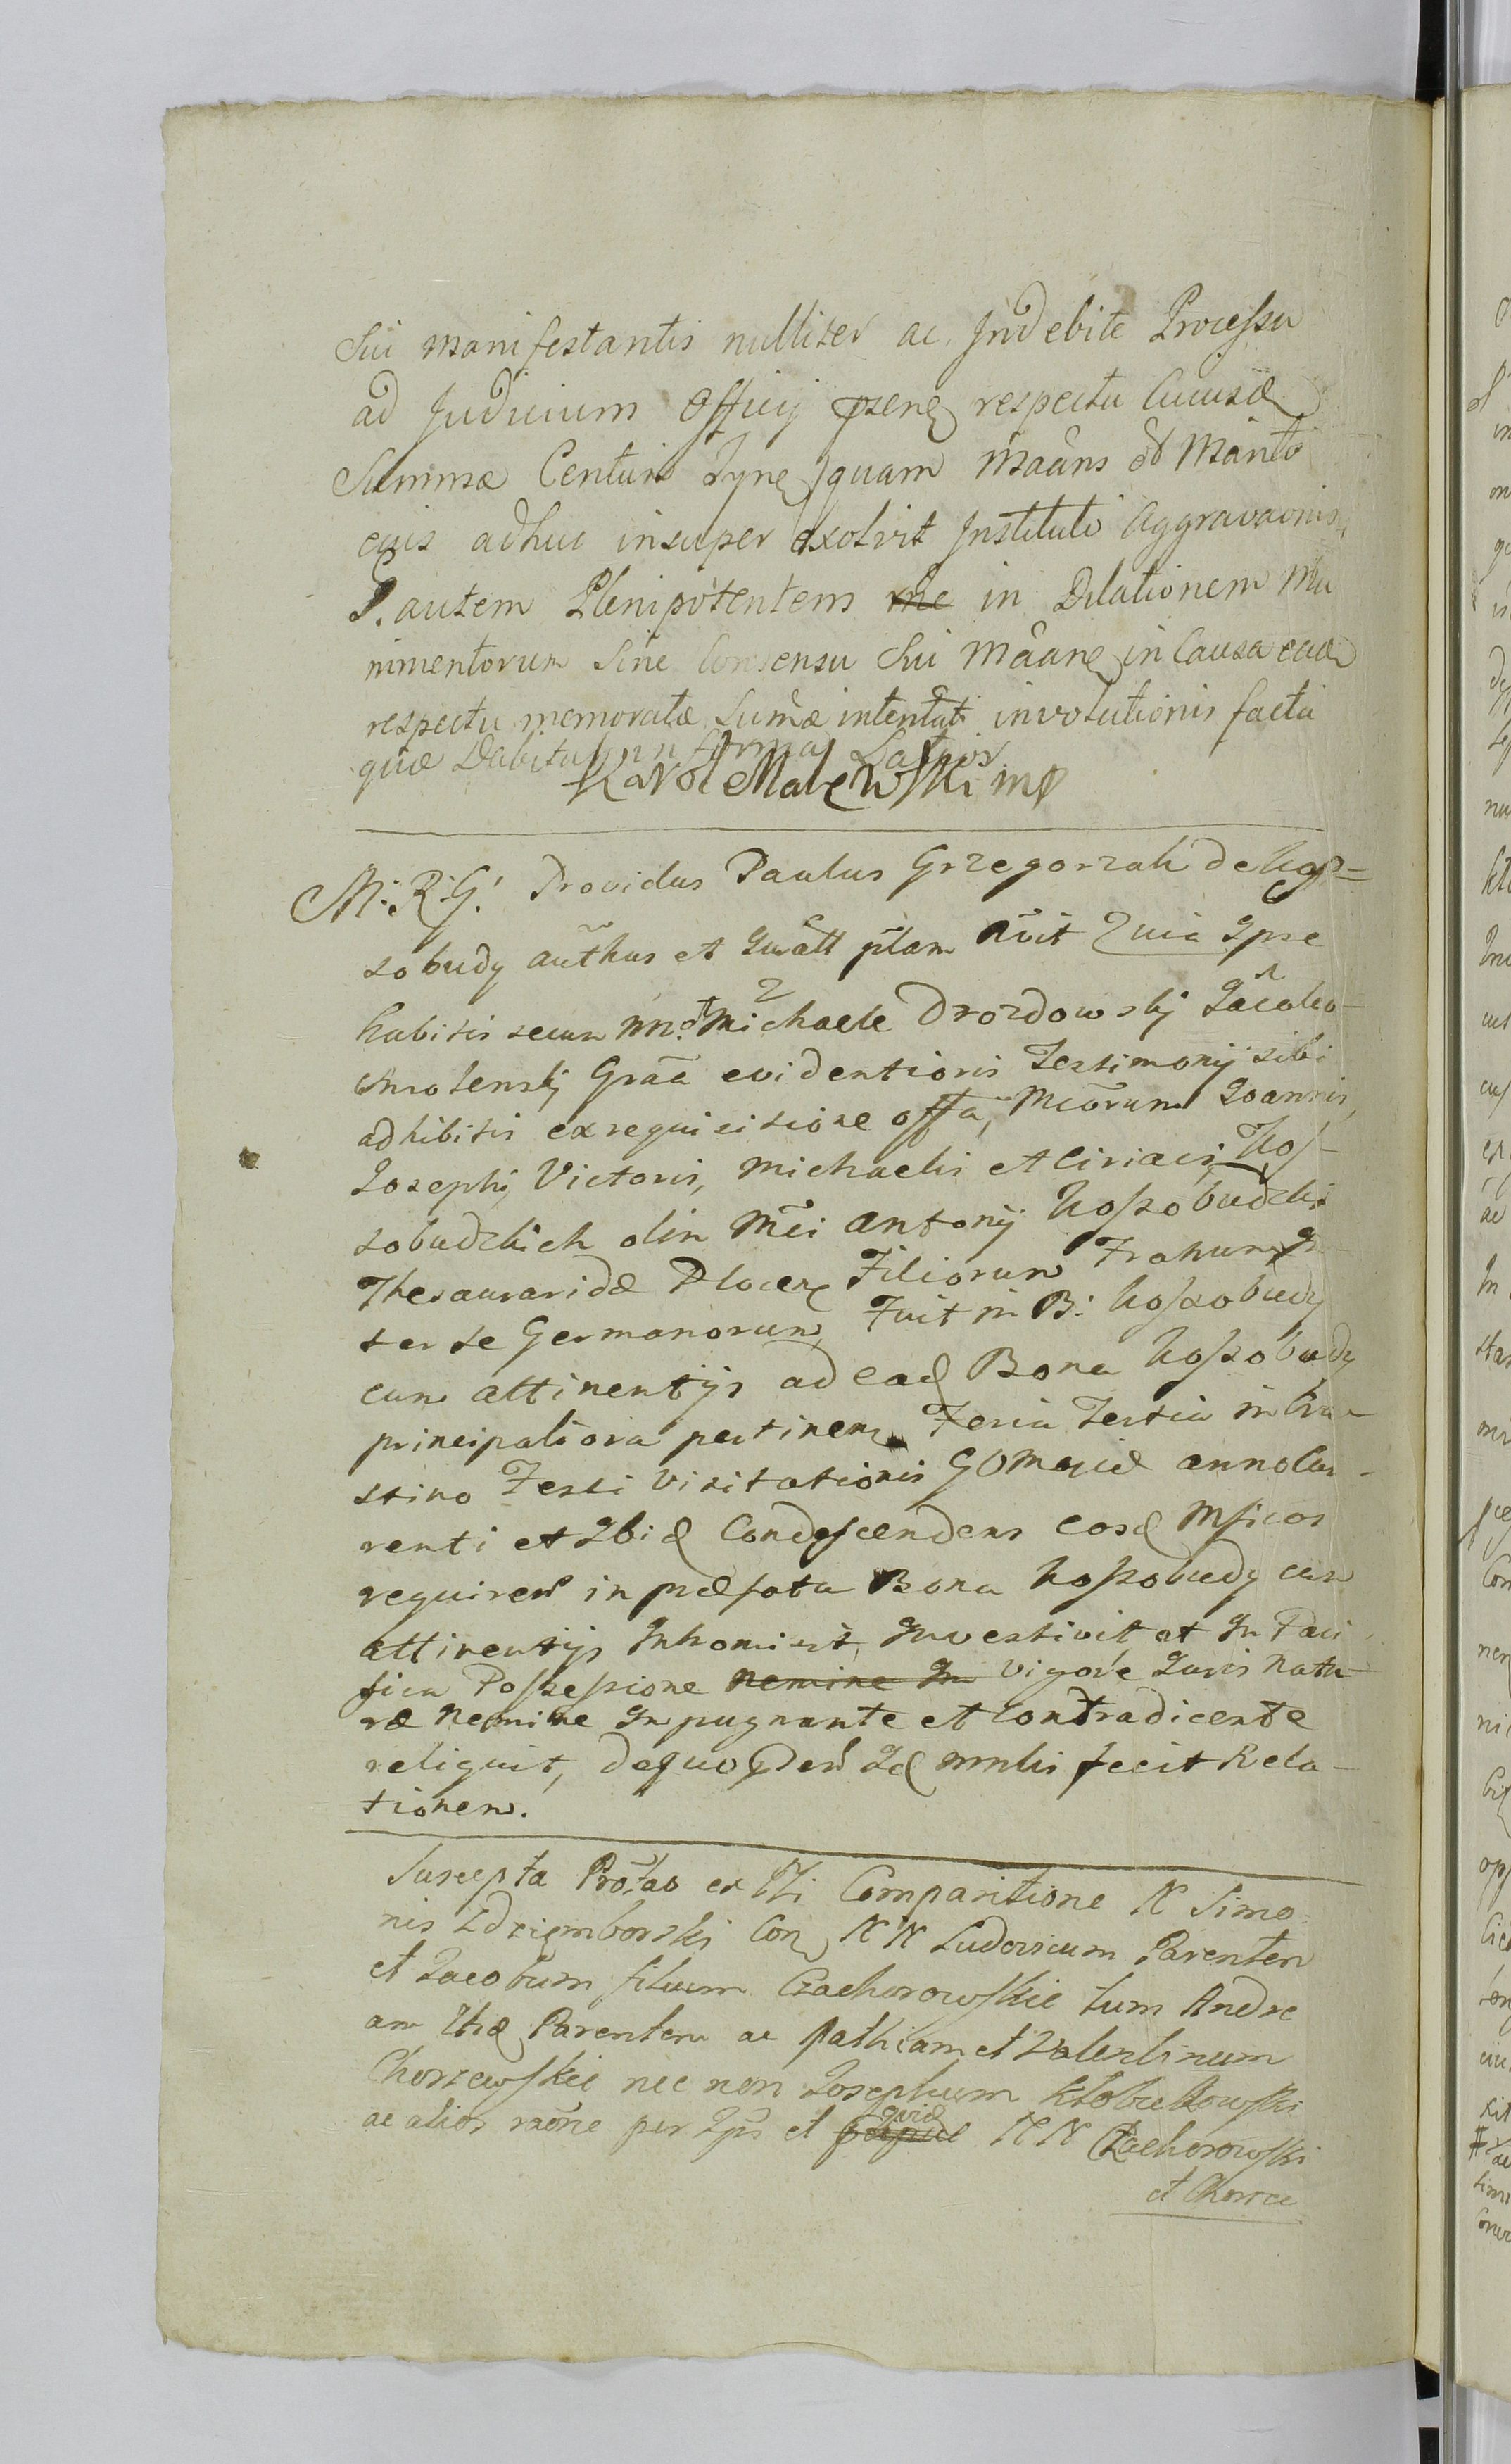 Sui manifestantis nulliter ac Indebite Processu
ad Judicium Officij psenȩ respectu Cuiusd
Summæ Centum Tynȩ quam Maans et Manto
eius adhuc insuper exolvit Instituti Aggravaonis,
P. autem Plenipotentem me in Dilationem Mu
nimentorum Sine Consensu Sui Maanȩ in Causa ead
respectu memoratæ Sum̃æ intentati involutionis facta
quæ Dabitur in forma Latior
Karol Malewski mp
M: R: G: Providus Paulus Grzegorzak de Kos=
sobudy auth̃us et Jurãtt pl̃am r̃vit Quia Ipse
habitis secum nn. Michaele Drozdowskj Jacobo
Smolenskj Grãa evidentioris Testimonij sibi
adhibitis ex requisitione offa, Mc̃orum Joannis,
Josephi, Victoris, Michaelis et Ciriaci Kos-
sobudzkich olim Mc̃i Antonij Kossobudzki
Thesauraridæ Plocenȩ Filiorum Fratrum In
ter se Germanorum, Fuit in B: Kossobudy
cum attinentijs ad ead Bona Kossobudy
principaliora pertinenȩ Feria Tertia in Cra-
stino Festi Visitationis G V Mariæ anno Cur-
renti et Ibid Condescendens eosd Msicos
requirenȩ in præfata Bona Kossobudy cum
attinentijs Intromisit, Investivit et In Paci
fica Possessione nemine In vigore Juris Natu-
ræ Nemine Inpugnante et Contradicente
reliquit, de quo psenȩ Id mnlis fecit Rela-
tionem.
Suscepta Prõtao ex Itti Comparitione N Simo
nis Zdziemborski Con N N Ludovicum Parentem
et Jacobum filium Czachorowskie tum Andre
am Itid Parentem ac Mathiam et Valentinum
Chorzewskie nec non Josephum Kłobukowski
ac alios raõne per Ipś et quid N N Czachorowski
et Chorze